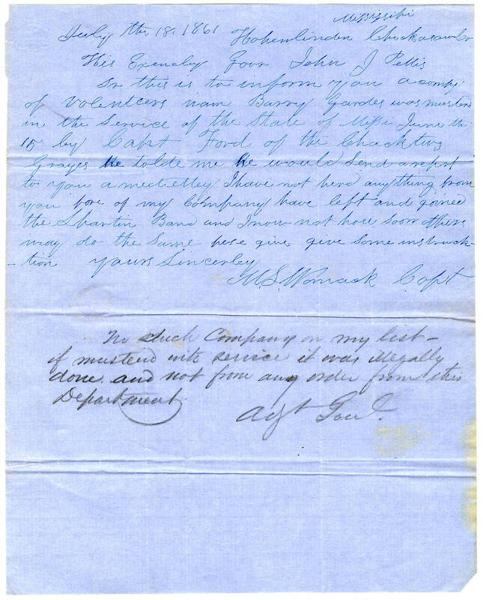 Mississippi
July the 18. 1861 Hohenlinden Chickasaw Co
His Excency Gov John J Pettis
Sir this is to inform you a compy
of volenteers nam Barry Gardes was musterd
in the Service of the State of Miss June the
15 by Capt Ford of the Chocktaw
Grayes He tolde me he would Send a report
to you amedietley I have not herd anything from
you fore of my Company have left and goined
the Spartin Band and I now not how soon others
may do the Same pese give give some instruck
-tion yours Sincerley
M S Womack Capt
No such Company on my list -
of musterd into service it was illegally
done and not from any order from this
Department
Adjt Genl.